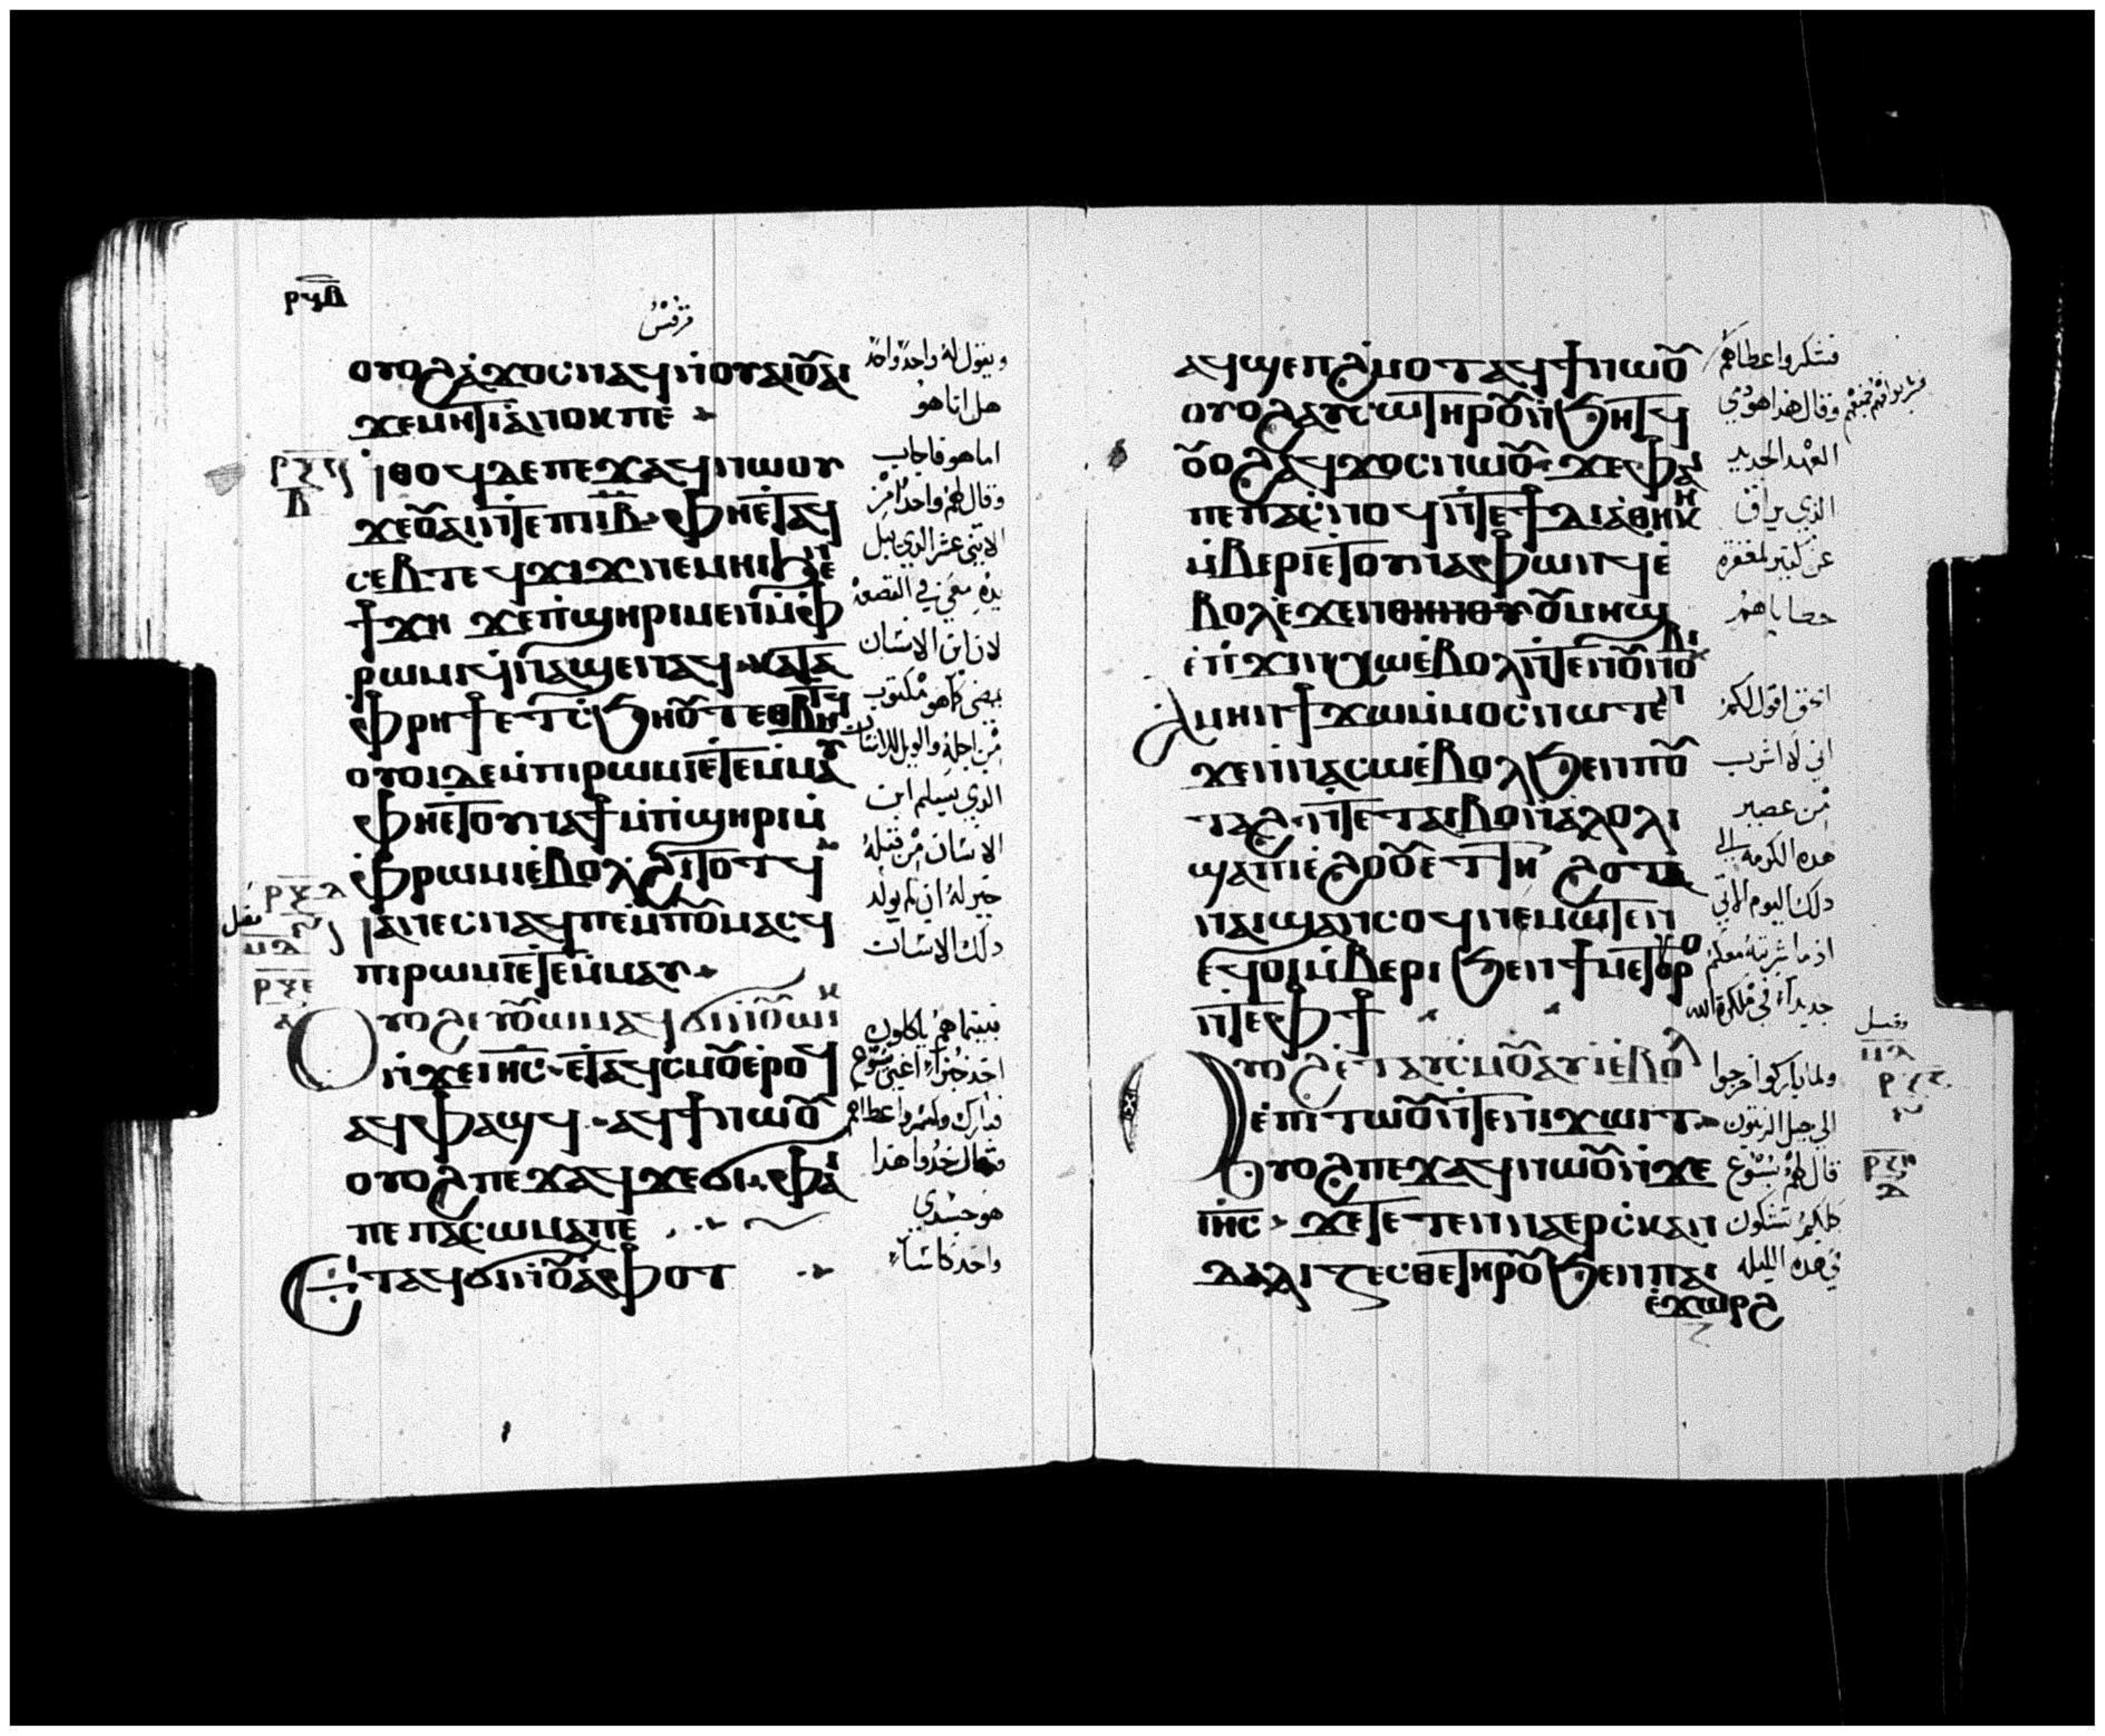 ⲣϥⲃ
مرقس
ⲟⲩⲟϩⲁϫⲟⲥⲛⲁϥⲛⲟⲩⲁⲓⲟ̅ⲁⲓ
ويقول له واحد واحد
ϫⲉⲙⲏϯⲁⲛⲟⲕⲡⲉ
هل انا هو
ⲛⲑⲟϥⲇⲉⲡⲉϫⲁϥⲛⲱⲟⲩ
اما هو فاجاب
ϫⲉⲟ̅ⲁⲓⲛⲧⲉⲡⲓⲓ̅ⲃ̅ ⲫⲏⲉⲧⲁϥ
وقال لهم واحد من
ⲥⲉⲃⲧⲉϥϫⲓϫⲛⲉⲙⲏⲓϧⲉⲛ
الاثنى عشر الذي يبل
ϯϫⲏ ϫⲉⲡϣⲏⲣⲓⲙⲉⲛⲙ̀ⲫ
يده معي في القصعه
ⲣⲱⲙⲓϥⲛⲁϣⲉⲛⲁϥ ⲕⲁⲧⲁ
لان ابن الانسان
ⲫⲣⲏϯⲉⲧⲥϧⲏⲟ̅ⲧⲉⲑⲃⲏⲧϥ
يمضي كما هو مكتوب
ⲟⲩⲟⲓⲇⲉⲙ̀ⲡⲓⲣⲱⲙⲓⲉⲧⲉⲙⲙⲁⲩ
من اجله والويل للانسان
ⲫⲏⲉⲧⲟⲩⲛⲁϯⲙ̀ⲡϣⲏⲣⲓⲙ̀
الذي يسلم ابن
ⲫⲣⲱⲙⲓⲉⲃⲟⲗϩⲓⲧⲟⲧϥ
الانسان من قبله
ⲛⲁⲛⲉⲥⲛⲁϥⲡⲉⲙ̀ⲡⲟ̅ⲙⲁⲥϥ
خير له ان لم يولد
ⲡⲓⲣⲱⲙⲓⲉⲧⲉⲙⲙⲁⲩ
ذلك الانسان
ⲟⲩⲟϩⲉⲩⲟ̅ⲱⲙⲛⲁϥϭⲓⲛⲟ̅ⲱⲓⲕ
بينما هم ياكلون
ⲛ̀ϫⲉⲓⲏⲥ ⲉⲧⲁϥⲥⲙⲟ̅ⲉⲣⲟϥ
اخذ خبزا اعني يسوع
ⲁϥⲫⲁϣϥ ⲁϥϯⲛⲱⲟ̅
فبارك وكسر واعطاهم
ⲟⲩⲟϩⲡⲉϫⲁϥϫⲉϭⲓ ⲫⲁⲓ
فقال خذوا هذا
ⲡⲉ ⲡⲁⲥⲱⲙⲁⲡⲉ
هو جسدي
ⲉⲧⲁϥϭⲓⲛⲟ̅ⲁⲫⲟⲧ
واخذ كاسا
ⲁϥϣⲉⲡϩⲙⲟⲧⲁϥϯⲛⲱⲟ̅
فشكر واعطاهم
ⲟⲩⲟϩⲁⲩⲥⲱⲧⲏⲣⲟ̅ⲛϧⲏⲧϥ
وقال هذا هو دمي
ⲟ̅ⲟϩⲁϥϫⲟⲥⲛⲱⲟ̅ ϫⲉⲫⲁⲓ
العهد الجديد
ⲡⲉⲡⲁⲥⲛⲟϥⲛⲧⲉϯⲇⲓⲁⲑⲏⲕⲏ
الذي يراق
ⲙ̀ⲃⲉⲣⲓⲉⲧⲟⲩⲛⲁⲫⲱⲛϥⲉ
عن كثير لمغفرة
ⲃⲟⲗⲉϫⲉⲛⲟ̅ⲙⲏϣ
خطاياهم
ⲉⲡϫⲓⲛⲭⲱⲉⲃⲟⲗⲛⲧⲉⲛⲟ̅ⲛⲟⲃⲓ
ⲁⲙⲏⲛϯϫⲱⲙ̀ⲙⲟⲥⲛⲱⲧⲉⲛ
الحق اقول لكم
ϫⲉⲛⲛⲁⲥⲱⲉⲃⲟⲗϧⲉⲛⲡⲟ̅
اني لا اشرب
ⲧⲁϩ ⲛⲧⲉⲧⲁⲓⲃⲱⲛⲁⲗⲟⲗⲓ
من عصير
ϣⲁⲡⲓⲉϩⲟⲟ̅ⲉⲧⲧⲏ ϩⲟⲧⲁ
هذه الكرمه الى
ⲛⲁⲓϣⲁⲛⲥⲟϥⲛⲉⲙⲱⲧⲉⲛ
ذلك اليوم الاتي
ⲉϥⲟⲓⲙ̀ⲃⲉⲣⲓϧⲉⲛϯⲙⲉⲧⲟⲩⲣⲟ
اذ ما اشربه معكم
ⲛⲧⲉⲫϯ
جديدا في ملكوة الله
ⲟⲩⲟϩⲉⲧⲁⲩⲥⲙⲟ̅ⲁⲩⲓⲉⲃⲟⲗ
ولما باركوا خرجوا
ⲉⲡⲓⲧⲱⲟ̅ⲛⲧⲉⲛⲓϫⲱⲓⲧ
الى جبل الزيتون
ⲟⲩⲟϩⲡⲉϫⲁϥⲛⲱⲟ̅ⲛϫⲉ
قال لهم يسوع
ⲓⲏⲥ ϫⲉⲧⲉⲧⲉⲛⲛⲁⲉⲣⲥⲕⲁⲛ
كلكم تشكون
ⲇⲁⲗⲓⲍⲉⲥⲑⲉⲧⲏⲣⲟ̅ϧⲉⲛⲡⲁⲓ
في هذه الليله
ⲉϫⲱⲣϩ